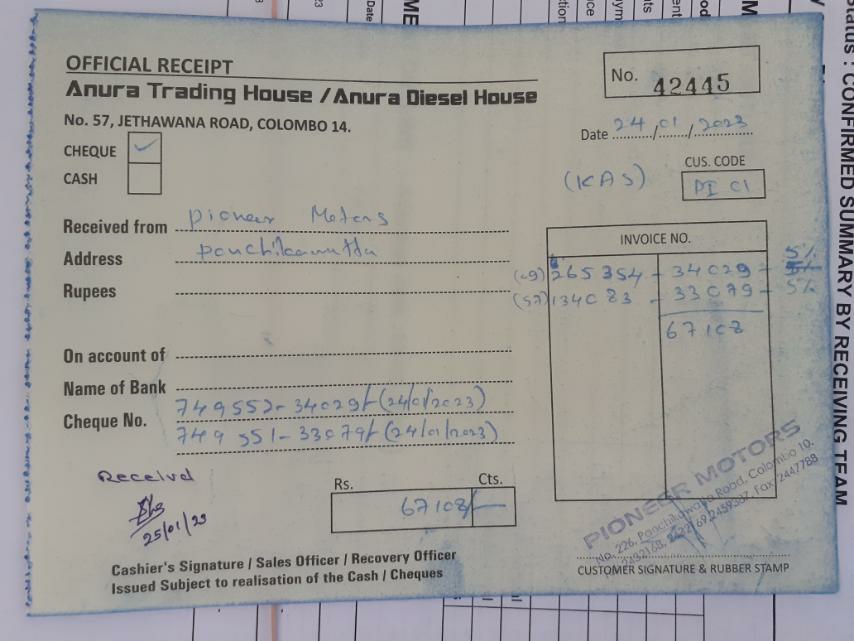 OFFICIAL RECEIPT
Anura Trading House / Anura Diesel House
No. 57, JETHAWANA ROAD, COLOMBO 14.
No. 42445
Date 24/01/2023
CHEQUE ✓
CASH
(KAS)
CUS. CODE
PI 01
Received from Pioneer Motors
Address Panchikawatta
Rupees
INVOICE NO.
(09) 265354 - 34029 - 5%
(57) 134083 - 33079 - 5%
67108
On account of
Name of Bank
Cheque No. 749552 - 34029/- (24/01/2023)
749551 - 33079/- (24/01/2023)
Received
25/01/23
Rs. Cts.
67108/-
Cashier's Signature / Sales Officer / Recovery Officer
Issued Subject to realisation of the Cash / Cheques
PIONEER MOTORS
No. 226, Panchikawatta Road, Colombo 10.
Fax: 2447788
CUSTOMER SIGNATURE & RUBBER STAMP
Status : CONFIRMED SUMMARY BY RECEIVING TEAM
Date